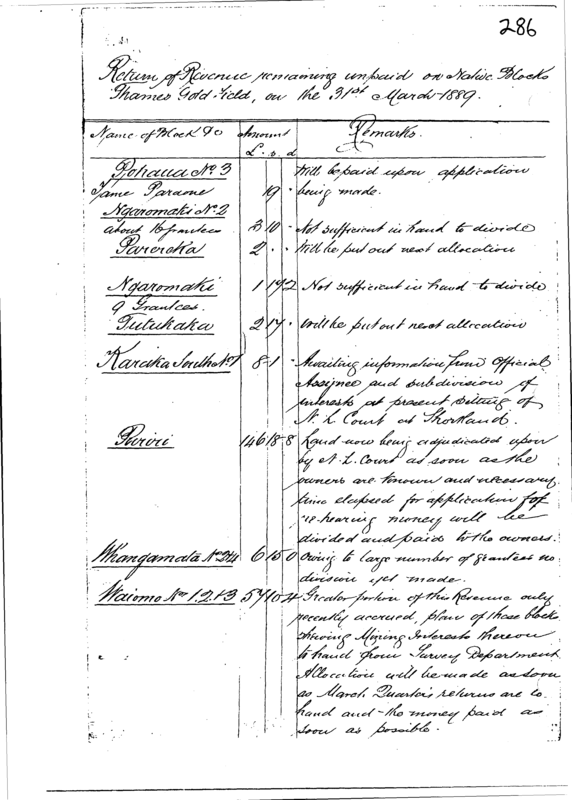 286
Return of Revenue remaining unpaid on Native Blocks
Thames Gold Field, on the 31st March 1889.
Name of Block &c Amount Remarks.
£ . s . d
Pohaua No 3 Will be paid upon application
Tame Paraone 19 . being made.
Ngaromaki No 2
about 16 grantees 3 10 . Not sufficient in hand to divide
Parereka 2 . . Will be put out next allocation
Ngaromaki 1 19 2 Not sufficient in hand to divide
9 Grantees.
Tutukaka 2 17 . Will be put out next allocation
Karaka South No 1 8 1 . Awaiting information from Official
Assignee and subdivision of
interests at present sitting of
N. L. Court at Shortland.
Puriri 146 18 8 Land now being adjudicated upon
by N. L. Court as soon as the
owners are known and necessary
time elapsed for application for
re-hearing money will be
divided and paid to the owners.
Whangamata No 6 15 0 Owing to large number of grantees no
division yet made.
Waiomo Nos 1. 2 & 3 57 10 4 Greater portion of this Revenue only
recently accrued, plan of these blocks
showing Mining Interests thereon
to hand from Survey Department
Allocation will be made as soon
as March Quarter's returns are to
hand and the money paid as
soon as possible.